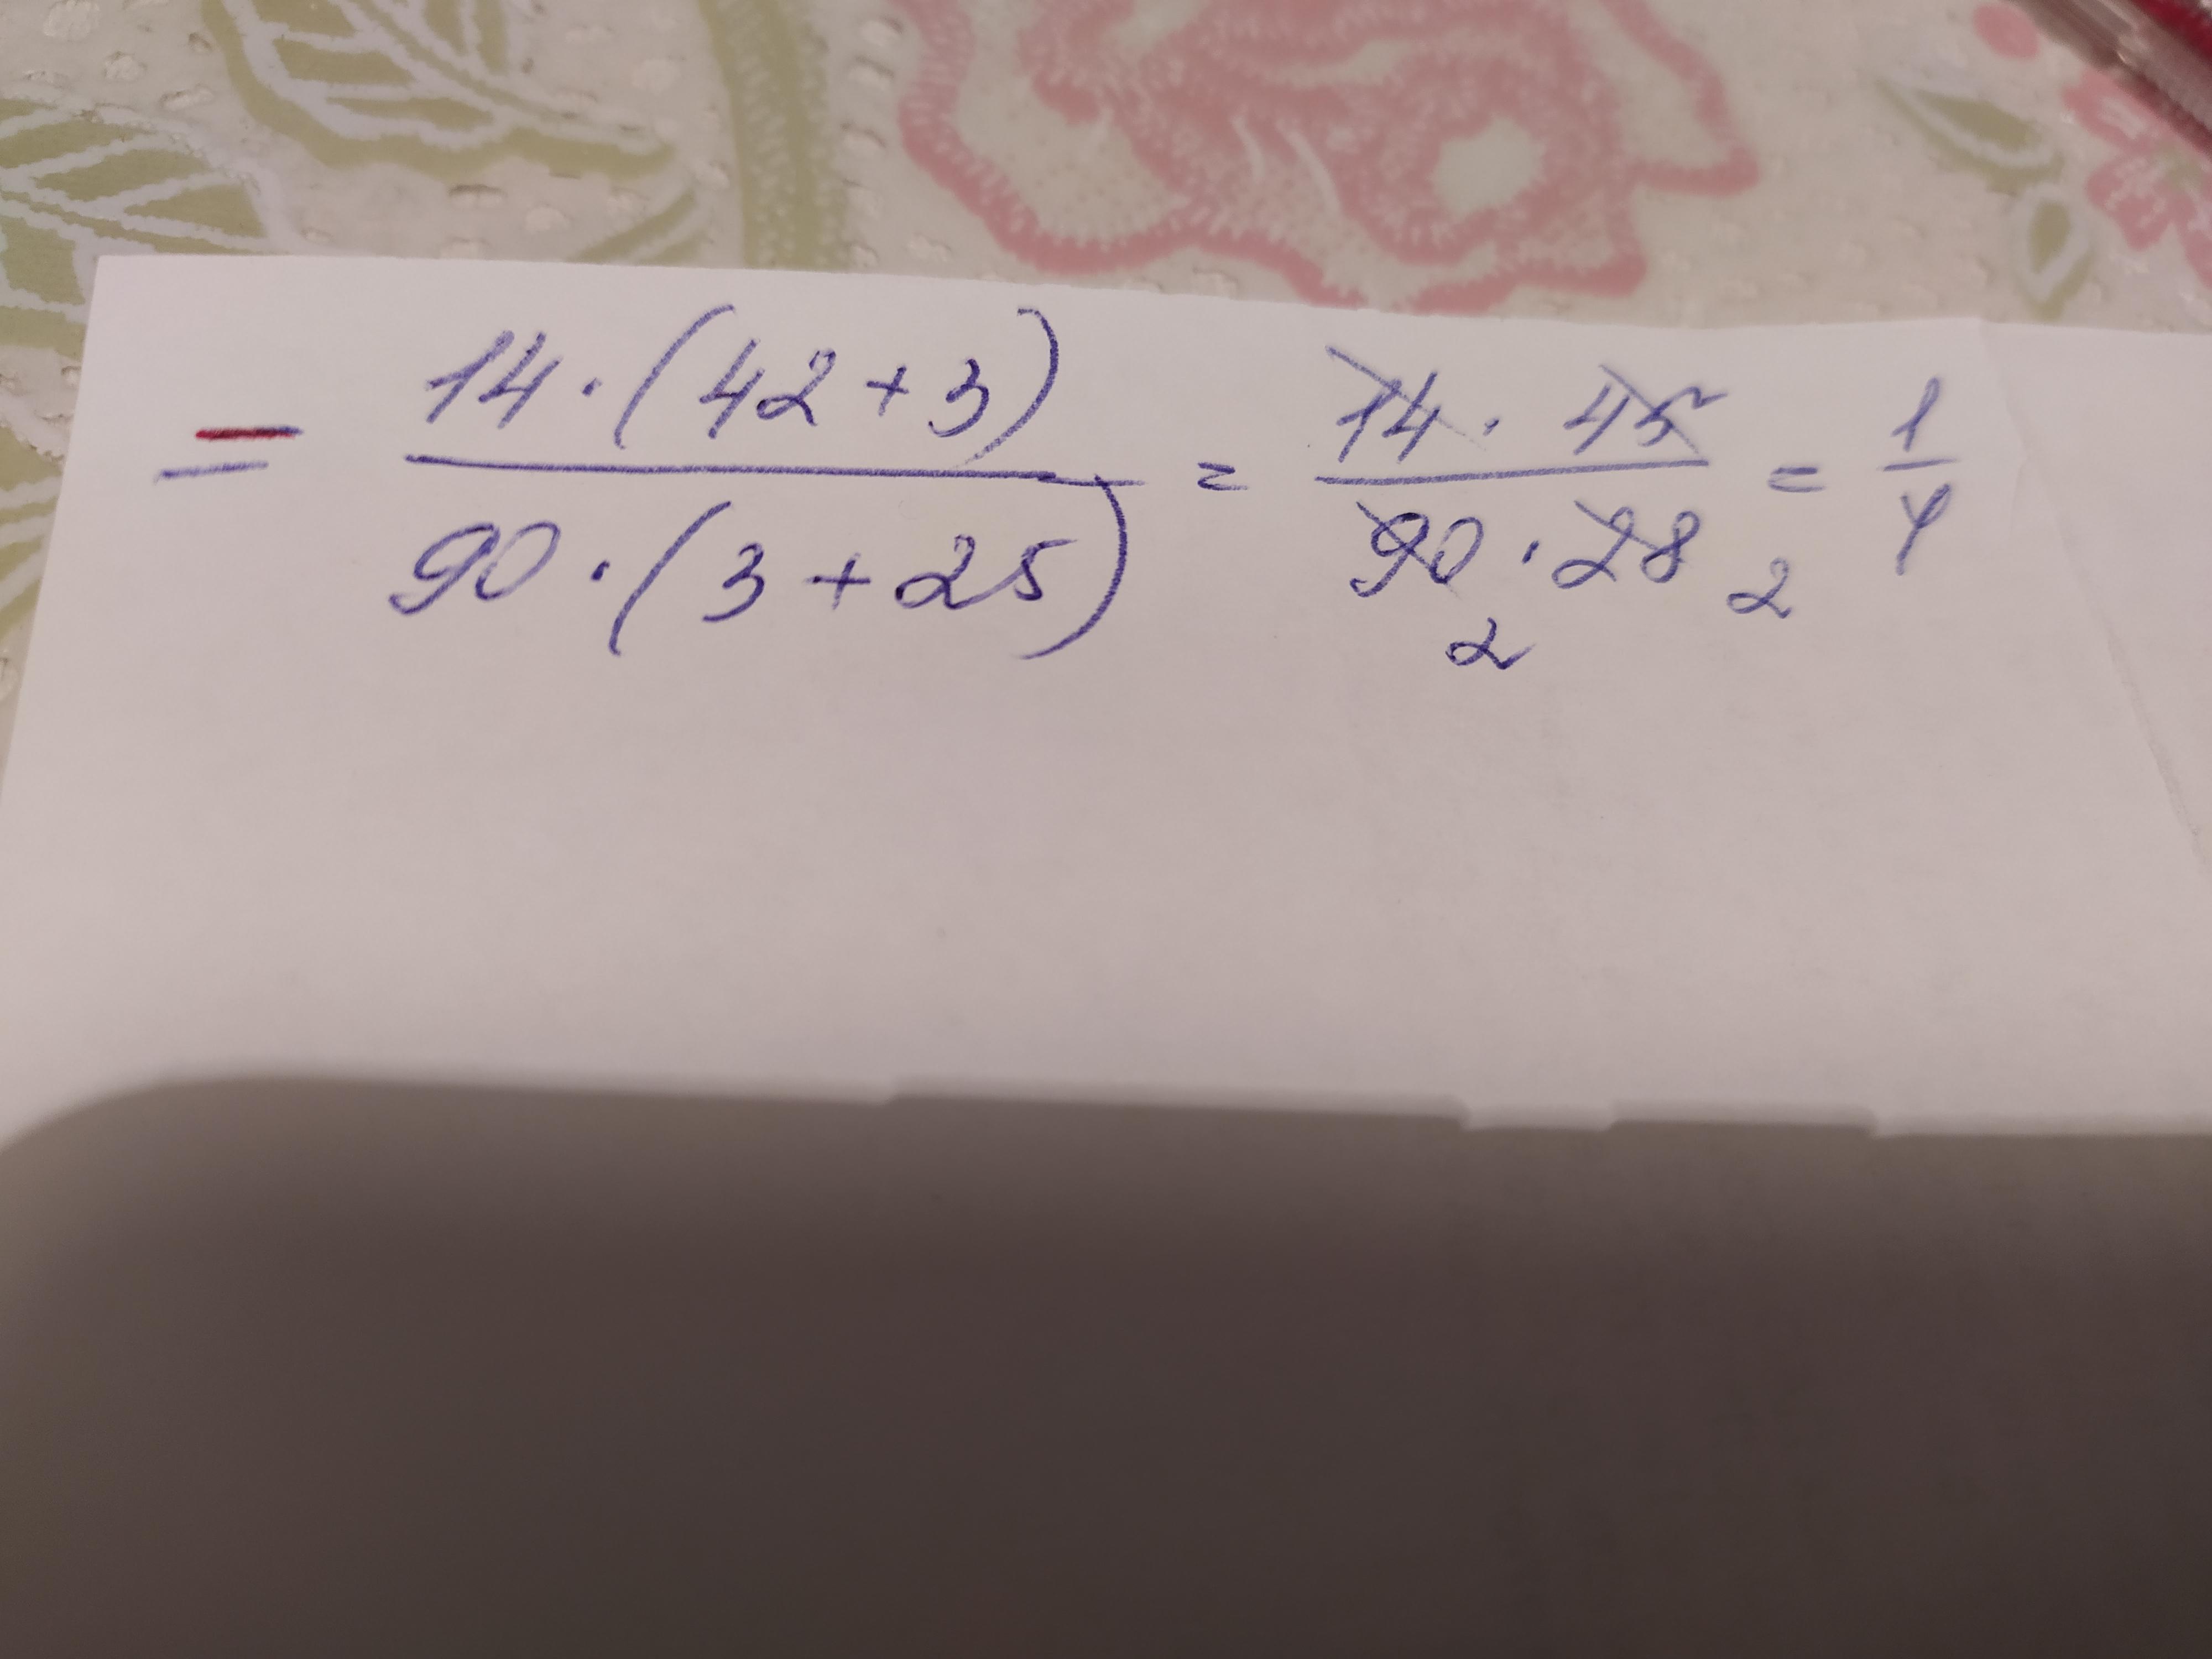 = 14 · (42 + 3) / 90 · (3 + 25) = 14 · 45 / 90 · 28 = 1 / 4
2 2